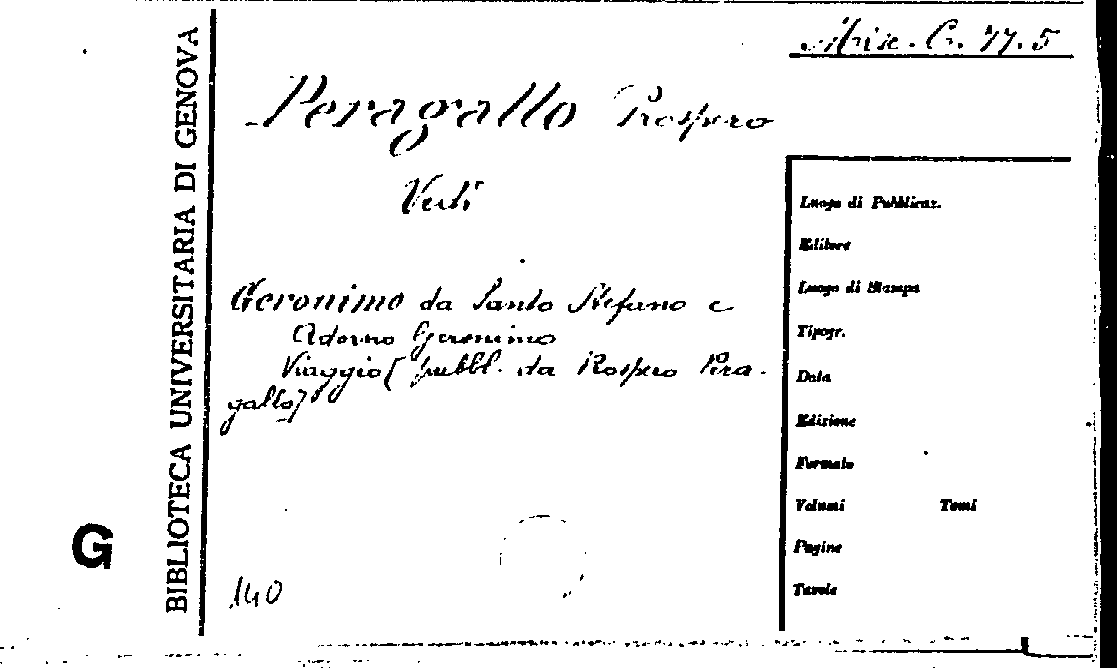 Misc. G. 77.5
BIBLIOTECA UNIVERSITARIA DI GENOVA
G
Peragallo Prospero
Vedi
Geronimo da Santo Stefano e
Adorno Geronimo
Viaggio [pubbl. da Prospero Pera-
gallo]
140
Luogo di Pubblicaz.
Editore
Luogo di Stampa
Tipogr.
Data
Edizione
Formato
Volumi Tomi
Pagine
Tavole